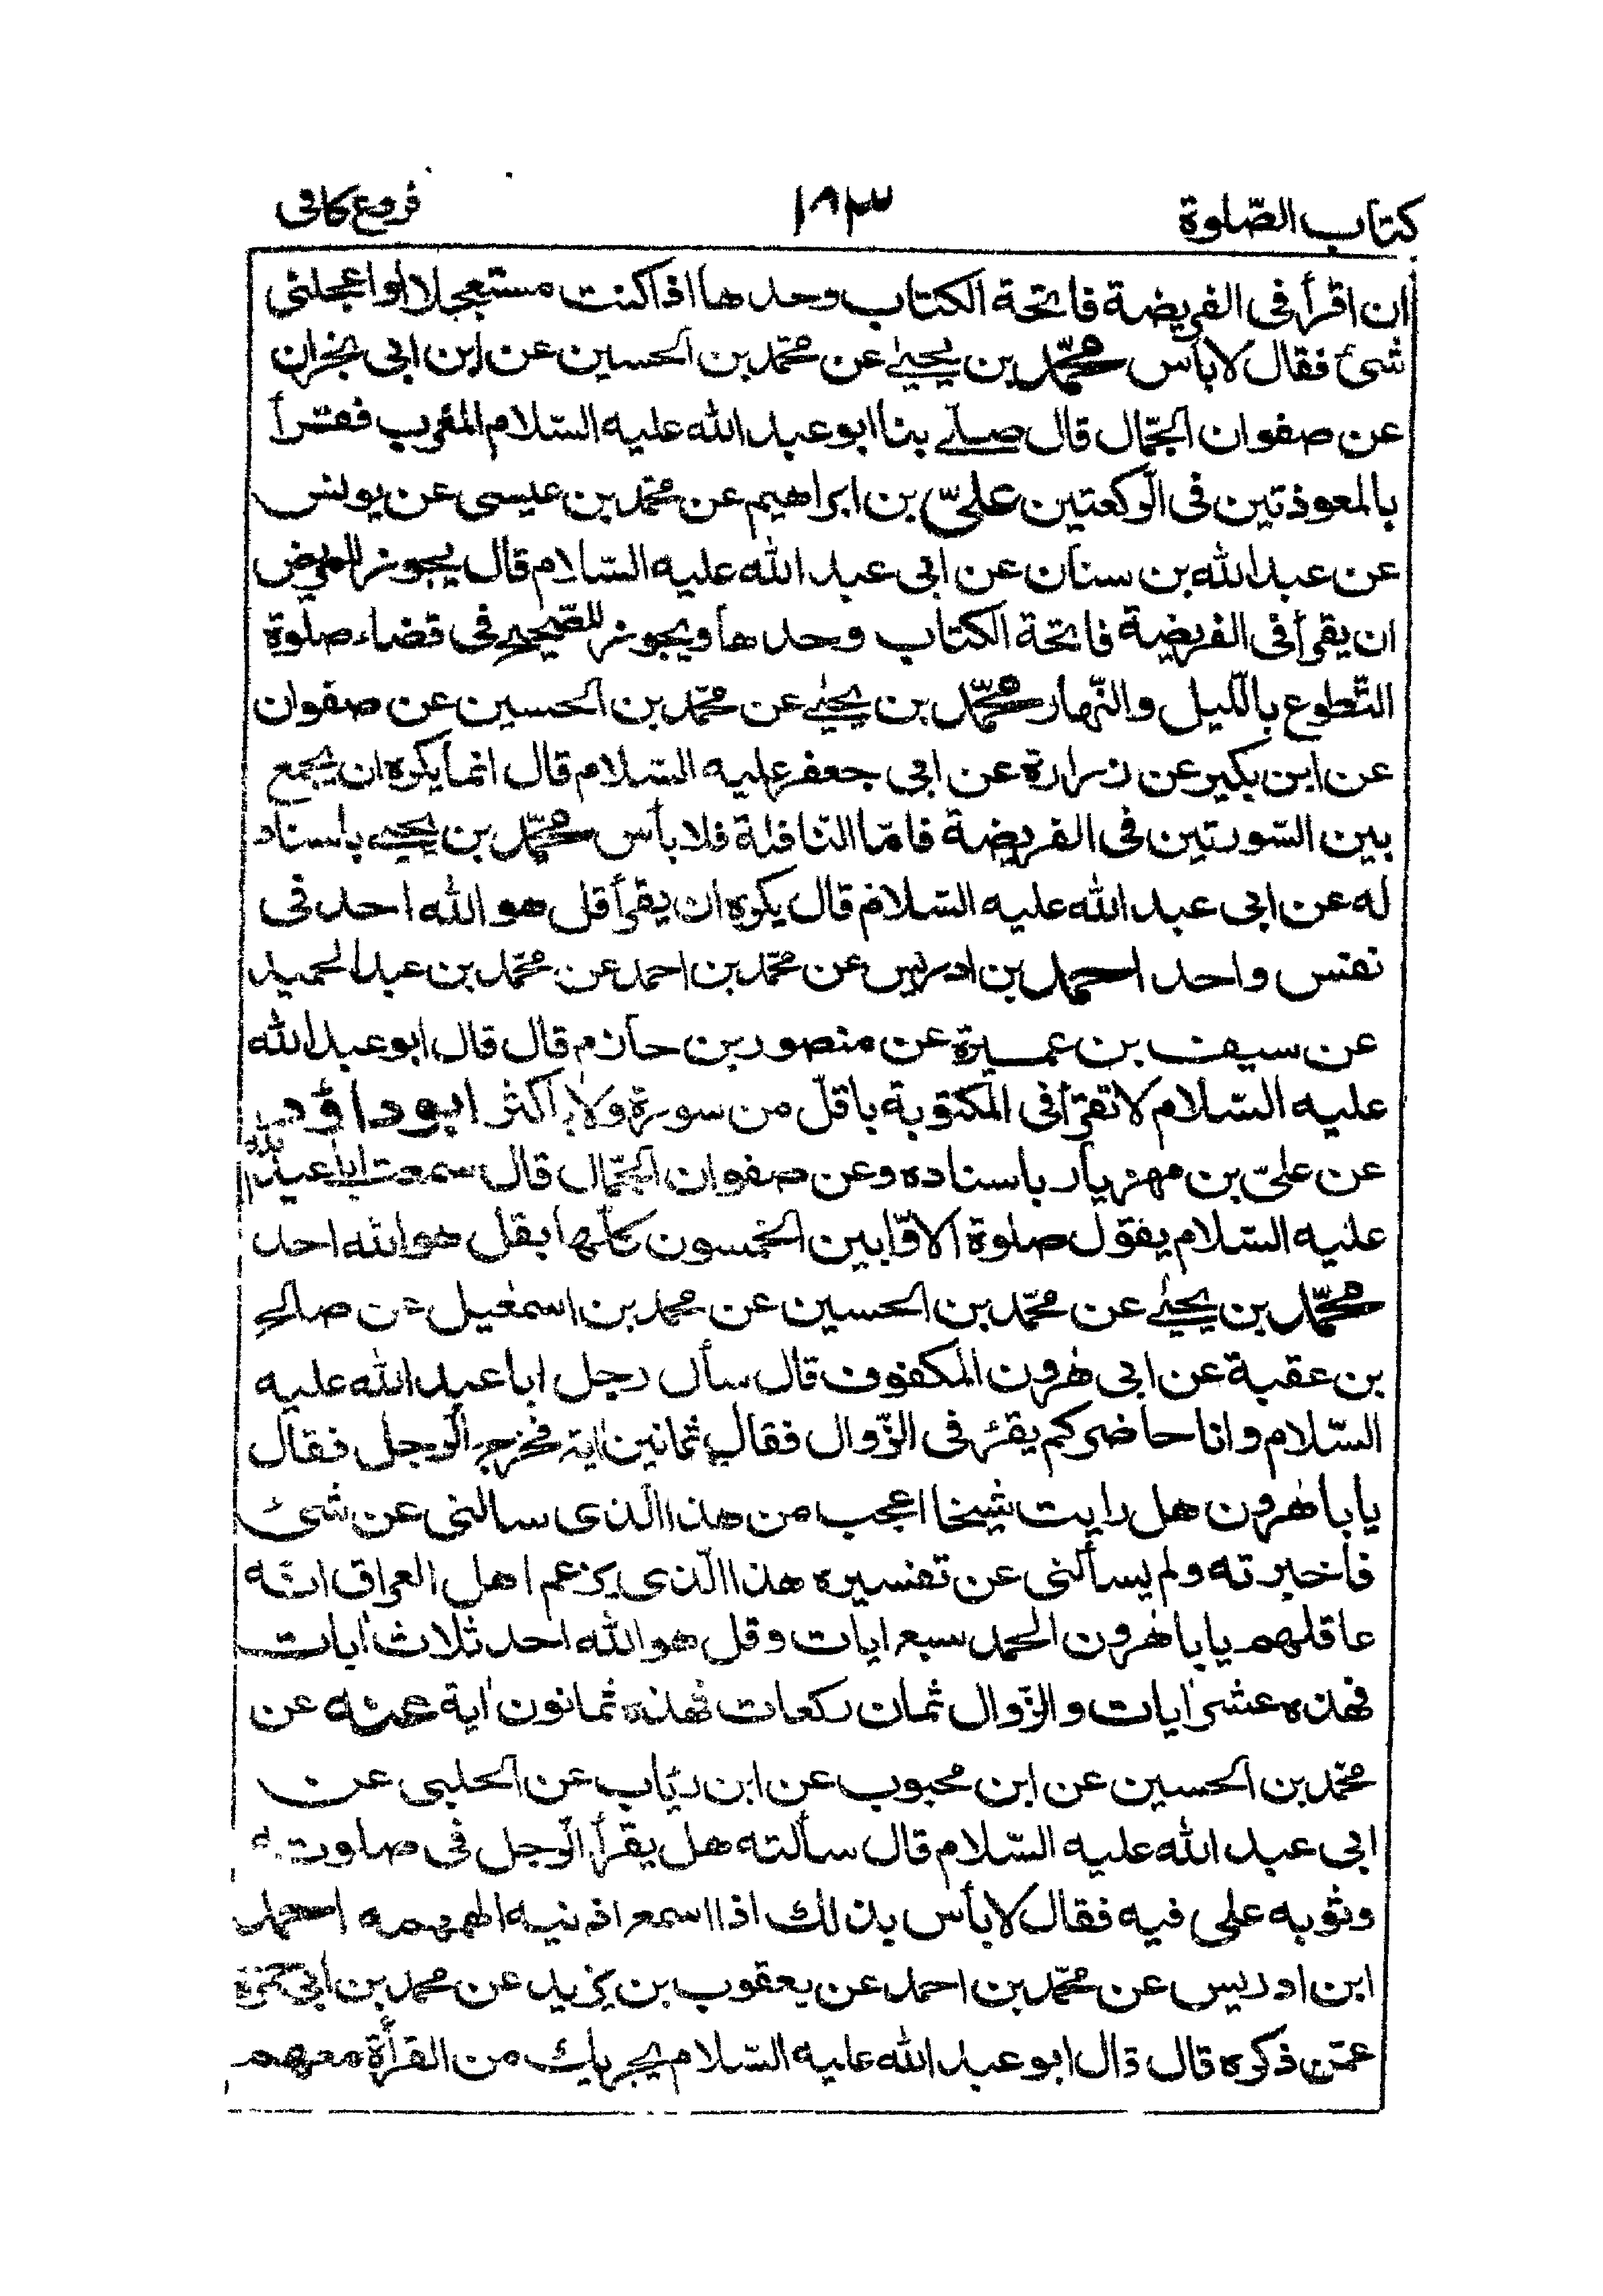 كتاب الصّلوة ١٨٣ فروع كافى
ان اقرأ فى الفريضة فاتحة الكتاب وحدها اذا كنت مستعجلا او اعجلنى
شئ فقال لا بأس محمّد بن يحيىٰ عن محمّد بن الحسين عن ابن ابى نجران
عن صفوان الجمّال قال صلى بنا ابو عبد الله عليه السّلام المغرب فقرأ
بالمعوذتين فى الرّكعتين علىّ بن ابراهيم عن محمّد بن عيسى عن يونس
عن عبد الله بن سنان عن ابى عبد الله عليه السّلام قال يجوز للمريض
ان يقرأ فى الفريضة فاتحة الكتاب وحدها ويجوز للصّحيح فى قضاء صلوة
التّطوع باللّيل والنّهار محمّد بن يحيىٰ عن محمّد بن الحسين عن صفوان
عن ابن بكير عن زرارة عن ابى جعفر عليه السّلام قال انما يكره ان يجمع
بين السّورتين فى الفريضة فامّا النّافلة فلا بأس محمّد بن يحيى باسناد
له عن ابى عبد الله عليه السّلام قال يكره ان يقرأ قل هو الله احد فى
نفس واحد احمد بن ادريس عن محمّد بن احمد عن محمّد بن عبد الحميد
عن سيف بن عميرة عن منصور بن حازم قال قال ابو عبد الله
عليه السّلام لا تقرأ فى المكتوبة باقلّ من سورة ولا باكثر ابو داؤد
عن علىّ بن مهزيار باسناده وعن صفوان الجمّال قال سمعت ابا عبد الله
عليه السّلام يقول صلوة الاوّابين الخمسون كلّها بقل هو الله احد
محمّد بن يحيىٰ عن محمّد بن الحسين عن محمد بن اسمٰعيل عن صالح
بن عقبة عن ابى هٰرون المكفوف قال سأل رجل ابا عبد الله عليه
السّلام وانا حاضر كم يقرء فى الزّوال فقال ثمانين اية فخرج الرّجل فقال
يا با هٰرون هل رايت شيخا اعجب من هذا الّذى سالنى عن شئ
فأخبرته ولم يسألنى عن تفسيره هذا الّذى يزعم اهل العراق انّه
عاقلهم يا با هٰرون الحمد سبع ايات وقل هو الله احد ثلاث اٰيات
فهذه عشر اٰيات والزّوال ثمان ركعات فهذه ثمانون اٰية عنه عن
محمّد بن الحسين عن ابن محبوب عن ابن رئاب عن الحلبى عن
ابى عبد الله عليه السّلام قال سألته هل يقرأ الرّجل فى صلوته
وثوبه على فيه فقال لا بأس بذلك اذا اسمع اذنيه الهمهمه احمد
ابن ادريس عن محمّد بن احمد عن يعقوب بن يزيد عن محمد بن ابى حمزة
عمّن ذكره قال قال ابو عبد الله عليه السّلام يجزيك من القرأة معهم